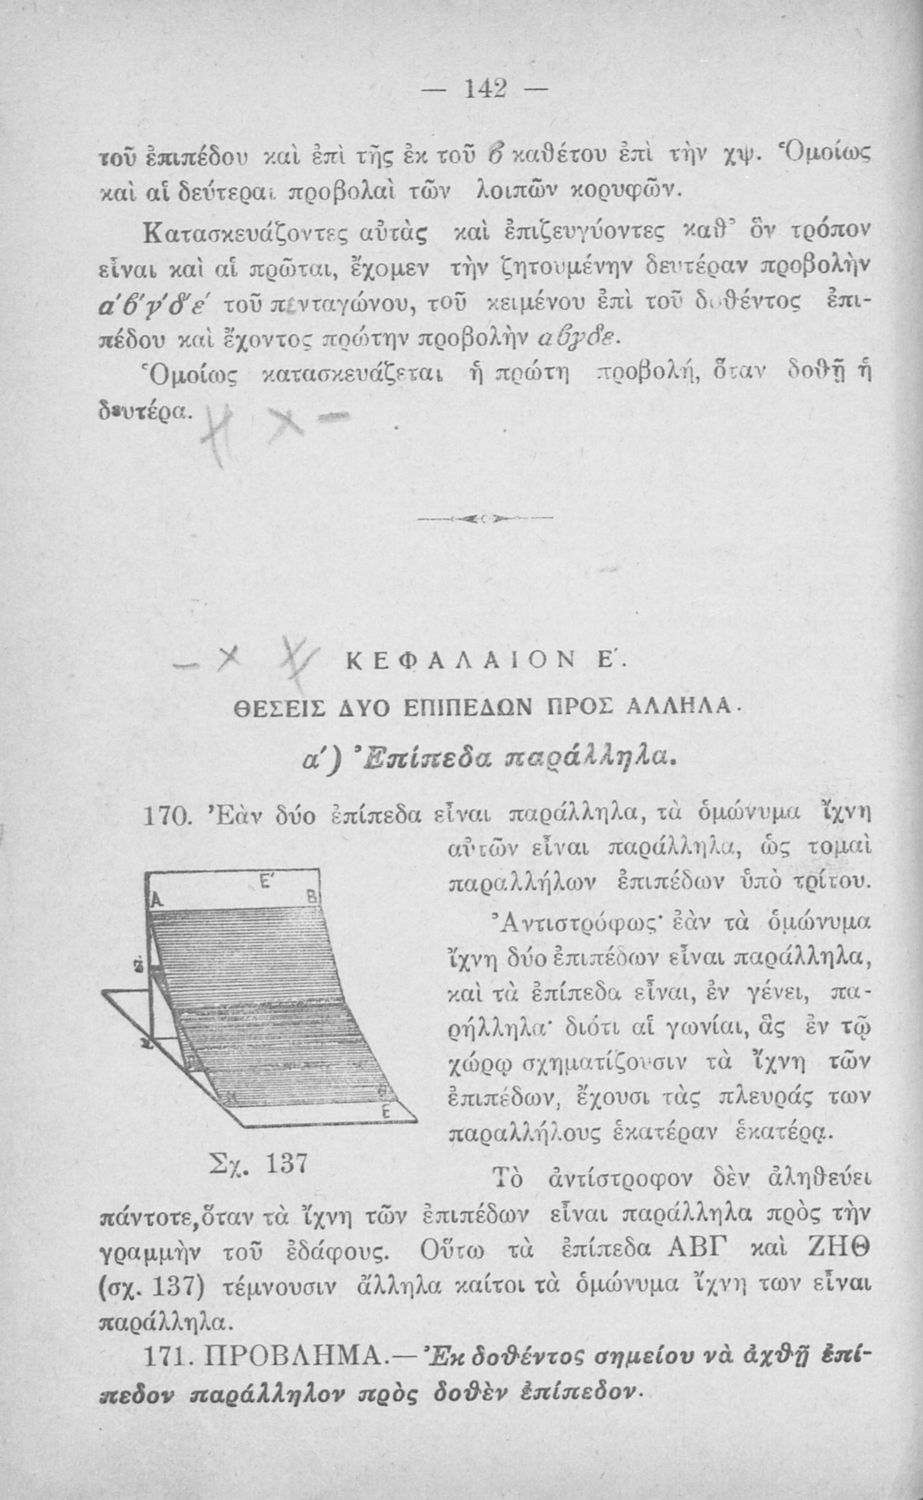 — 142 —
τοῦ ἐπιπέδου καὶ ἐπὶ τῆς ἐκ τοῦ β καθέτου ἐπὶ τὴν χψ. Ὁμοίως
καὶ αἱ δεύτεραι προβολαὶ τῶν λοιπῶν κορυφῶν.
Κατασκευάζοντες αὐτὰς καὶ ἐπιζευγύοντες καθ᾽ ὃν τρόπον
εἶναι καὶ αἱ πρῶται, ἔχομεν τὴν ζητουμένην δευτέραν προβολὴν
α´β´γ´δ´ε´ τοῦ πενταγώνου, τοῦ κειμένου ἐπὶ τοῦ δοθέντος ἐπι-
πέδου καὶ ἔχοντος πρώτην προβολὴν αβγδε.
Ὁμοίως κατασκευάζεται ἡ πρώτη προβολή, ὅταν δοθῇ ἡ
δευτέρα.
ΚΕΦΑΛΑΙΟΝ Ε΄.
ΘΕΣΕΙΣ ΔΥΟ ΕΠΙΠΕΔΩΝ ΠΡΟΣ ΑΛΛΗΛΑ.
α´) Ἐπίπεδα παράλληλα.
170. Ἐὰν δύο ἐπίπεδα εἶναι παράλληλα, τὰ ὁμώνυμα ἴχνη
αὐτῶν εἶναι παράλληλα, ὡς τομαὶ
παραλλήλων ἐπιπέδων ὑπὸ τρίτου.
Ἀντιστρόφως· ἐὰν τὰ ὁμώνυμα
ἴχνη δύο ἐπιπέδων εἶναι παράλληλα,
καὶ τὰ ἐπίπεδα εἶναι, ἐν γένει, πα-
ρήλληλα· διότι αἱ γωνίαι, ἃς ἐν τῷ
χώρῳ σχηματίζουσιν τὰ ἴχνη τῶν
ἐπιπέδων, ἔχουσι τὰς πλευράς των
παραλλήλους ἑκατέραν ἑκατέρᾳ.
Ε´
Α Β
Ε
Σχ. 137
Τὸ ἀντίστροφον δὲν ἀληθεύει
πάντοτε, ὅταν τὰ ἴχνη τῶν ἐπιπέδων εἶναι παράλληλα πρὸς τὴν
γραμμὴν τοῦ ἐδάφους. Οὕτω τὰ ἐπίπεδα ΑΒΓ καὶ ΖΗΘ
(σχ. 137) τέμνουσιν ἄλληλα καίτοι τὰ ὁμώνυμα ἴχνη των εἶναι
παράλληλα.
171. ΠΡΟΒΛΗΜΑ.— Ἐκ δοθέντος σημείου νὰ ἀχθῇ ἐπί-
πεδον παράλληλον πρὸς δοθὲν ἐπίπεδον.